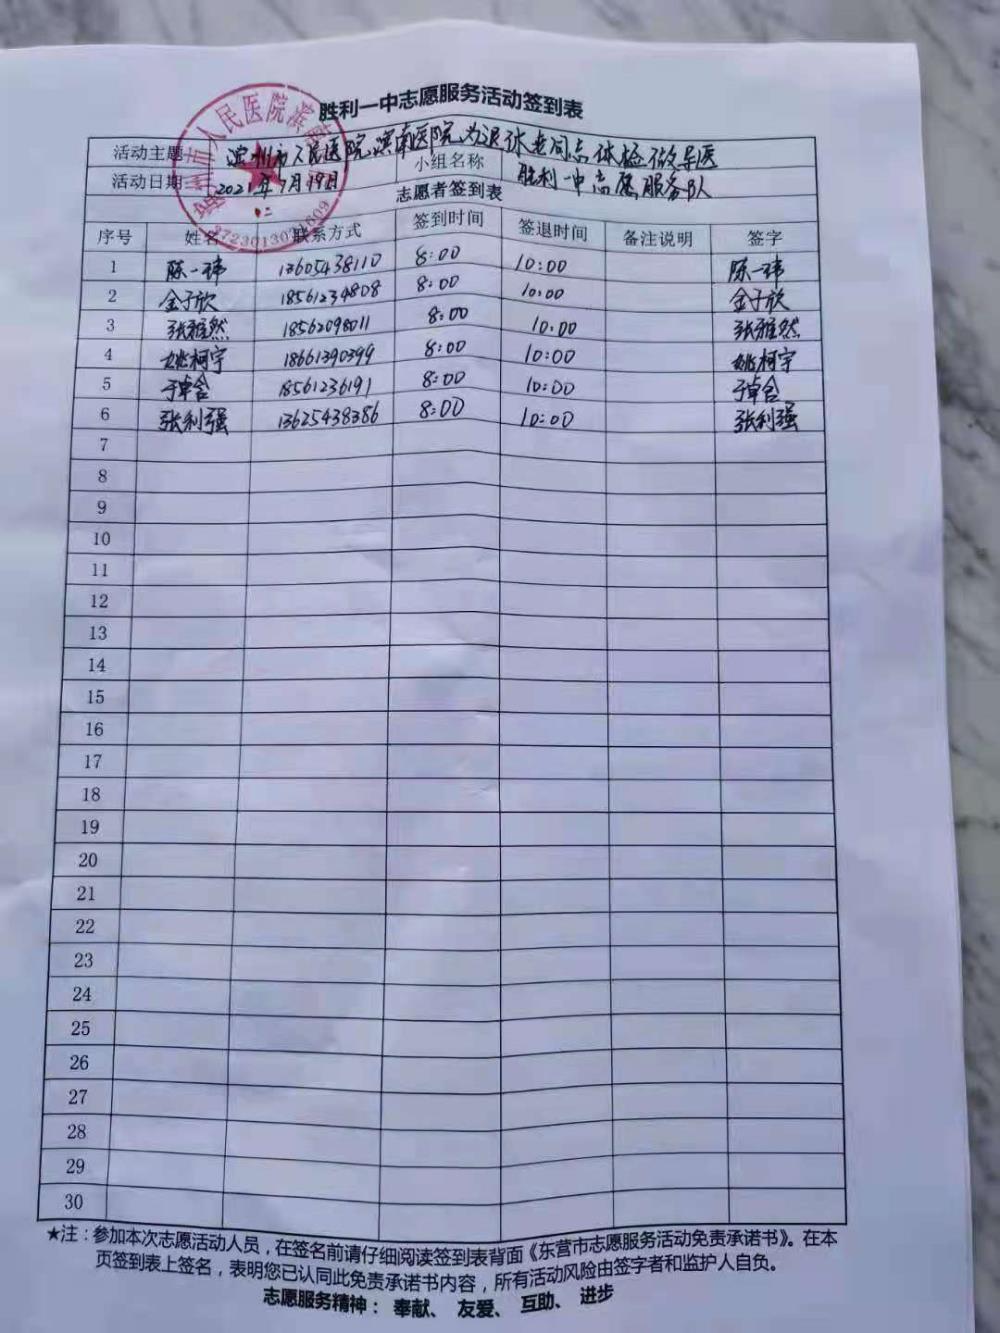 胜利一中志愿服务活动签到表
活动主题 滨州市人民医院滨南医院为退休老同志体检做导医
活动日期 2021年7月19日 小组名称 胜利一中志愿服务队
志愿者签到表
序号 姓名 联系方式 签到时间 签退时间 备注说明 签字
1 陈一玮 13605438110 8:00 10:00 陈一玮
2 金子欣 18561234808 8:00 10:00 金子欣
3 张雅然 18562098011 8:00 10:00 张雅然
4 姚柯宇 18661390399 8:00 10:00 姚柯宇
5 于卓含 18561236191 8:00 10:00 于卓含
6 张利强 13625438386 8:00 10:00 张利强
7
8
9
10
11
12
13
14
15
16
17
18
19
20
21
22
23
24
25
26
27
28
29
30
★注：参加本次志愿活动人员，在签名前请仔细阅读签到表背面《东营市志愿服务活动免责承诺书》。在本
页签到表上签名，表明您已认同此免责承诺书内容，所有活动风险由签字者和监护人自负。
志愿服务精神：奉献、友爱、互助、进步